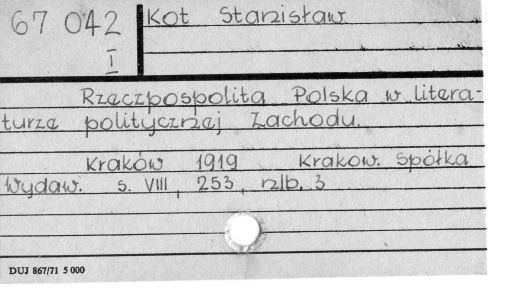 67 042
I
Kot Stanisław
Rzeczpospolita Polska w litera-
turze politycznej Zachodu.
Kraków 1919 Krakow. Spółka
Wydaw. s. VIII, 253, nlb. 3
DUJ 867/71 5 000